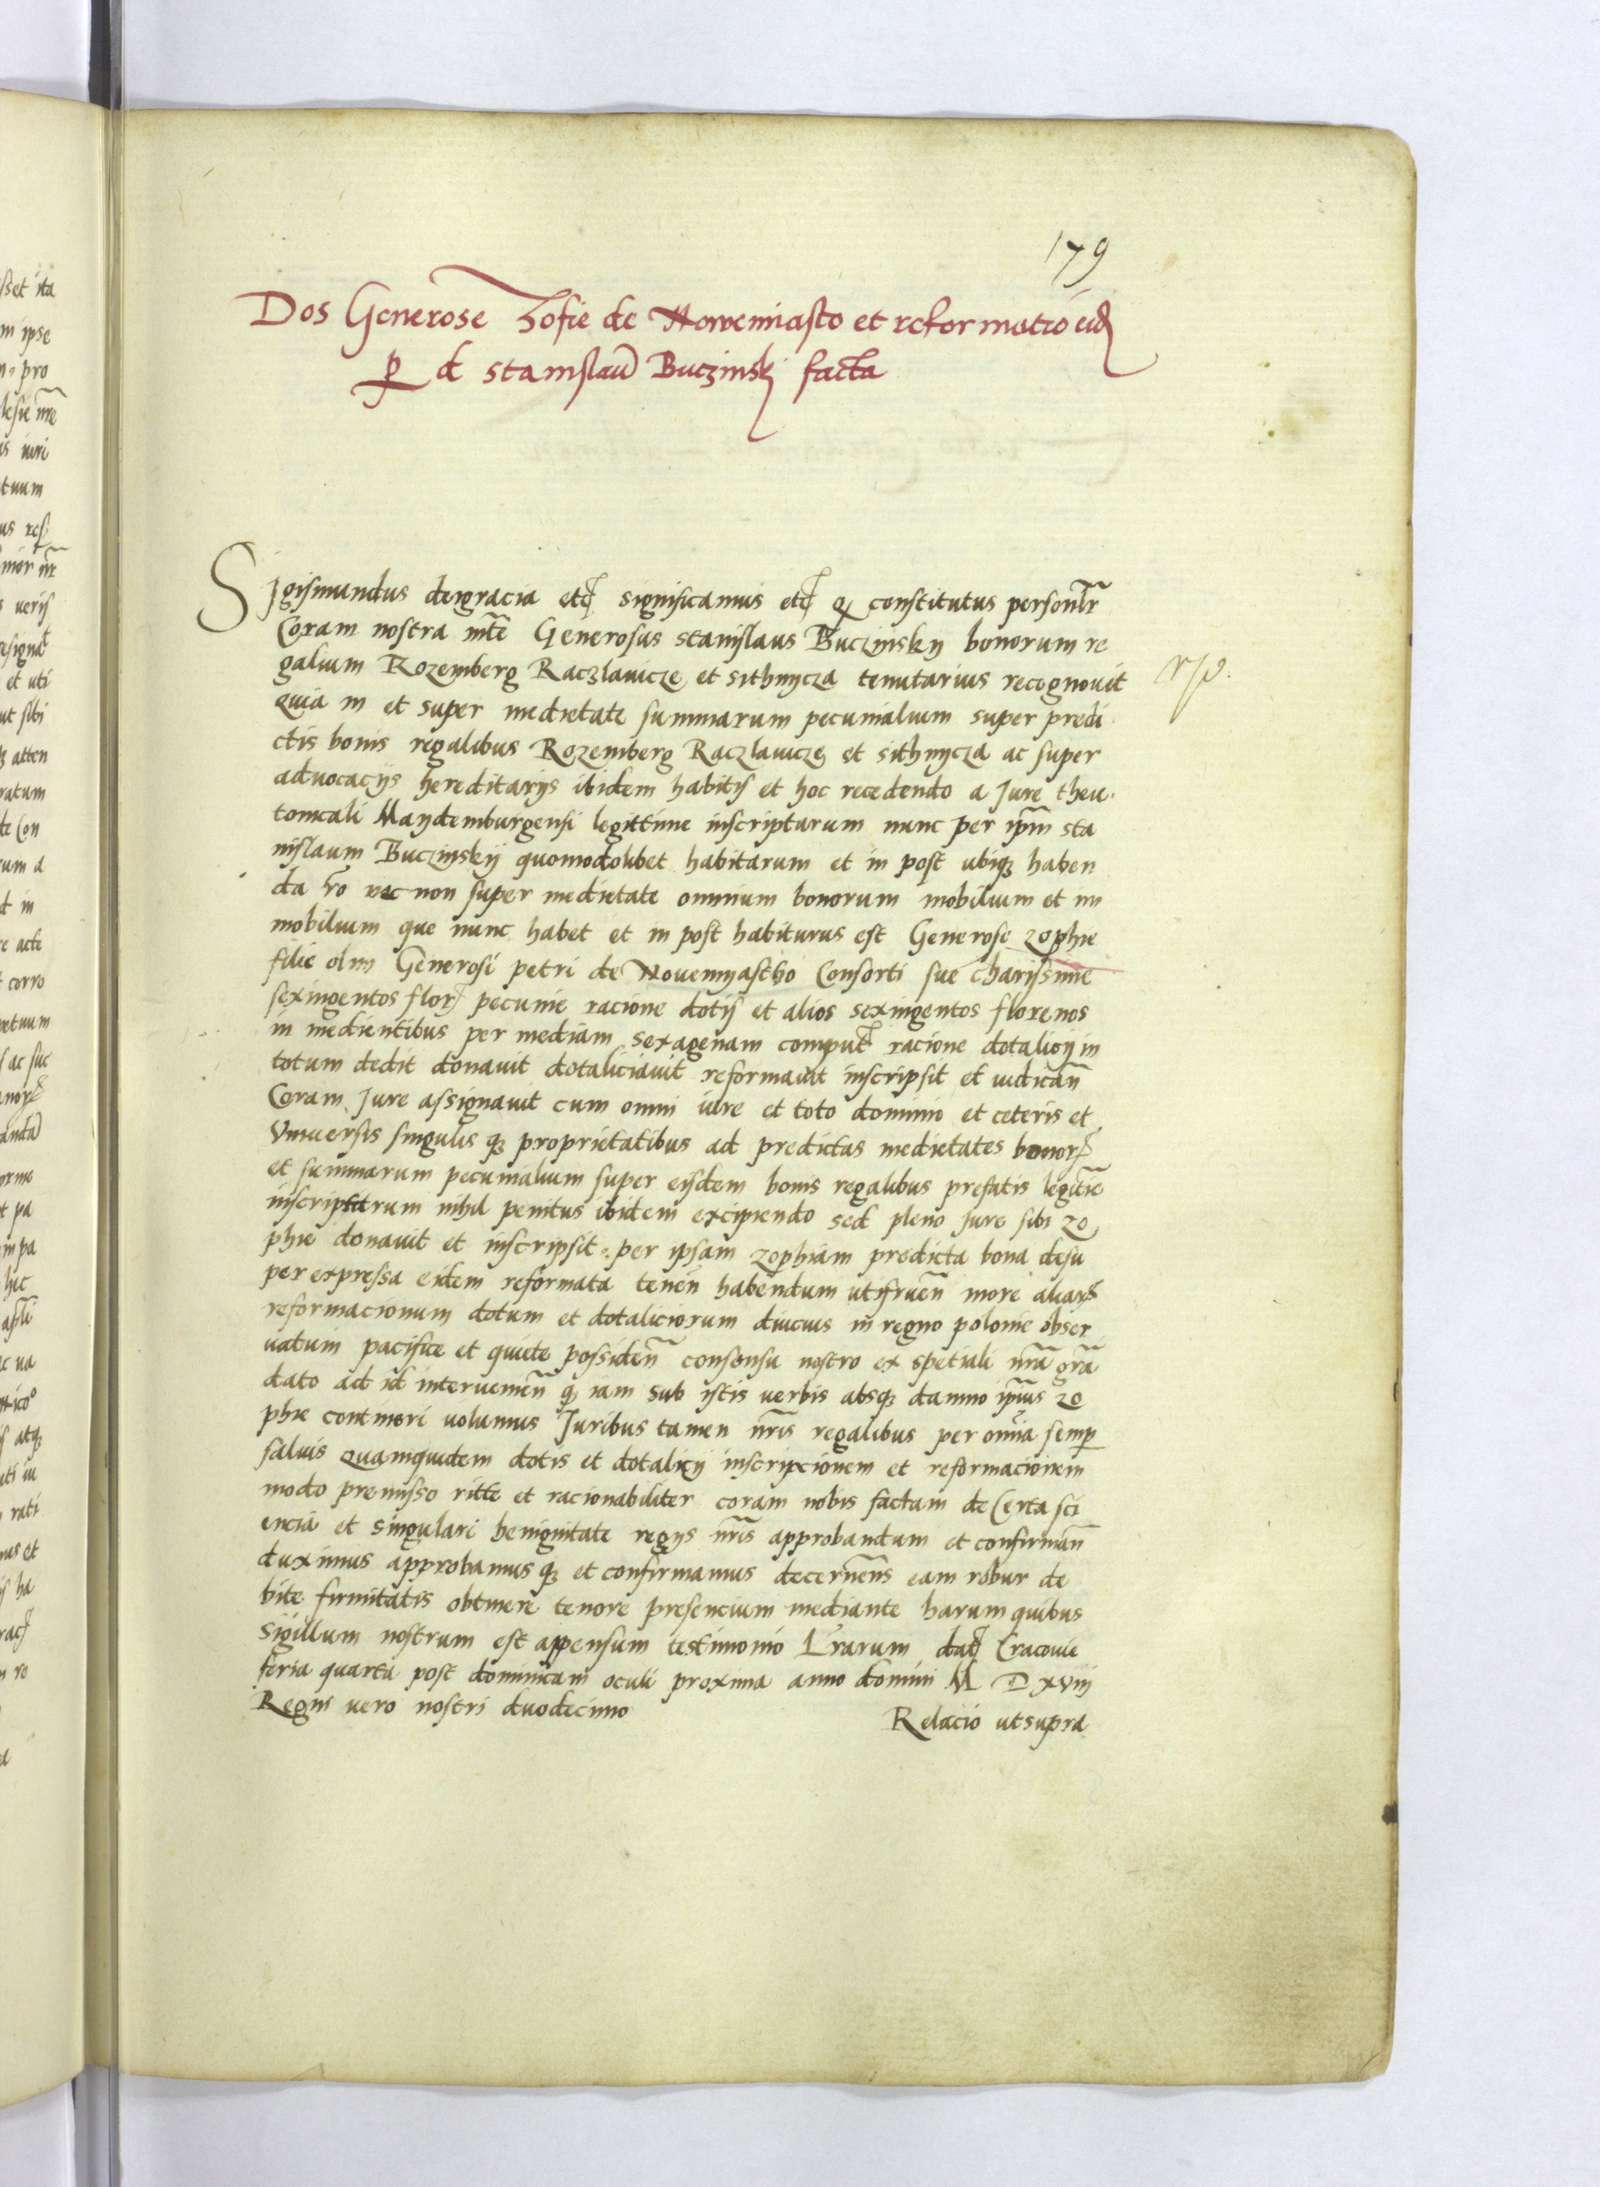 179
Dos Generose Zofie de Nowemiasto et reformatio eidem
per d Stanislaum Buczinskj facta
Sigismundus deigracia etc significamus etc quia constitutus personlr
Coram nostra mte Generosus stanislaus Buczinskij bonorum re
galium Rozemberg Raczlauicze et sithnycza tenutarius recognouit
quia in et super medietate summarum pecunialium super predi
ctis bonis regalibus Rozemberg Raczlauicze et sithnycza ac super
aduocacijs hereditarijs ibidem habitis et hoc recedendo a Jure theu
tonicali Maydemburgensi legittime inscriptarum nunc per ipm sta
nislaum Buczinskij quomodolibet habitarum et in post ubique haben
da ro nec non super medietate omnium bonorum mobilium et im
mobilium que nunc habet et in post habiturus est Generose zophie
filie olim Generosi petri de Nouemyastho Consorti sue charissime
sexingentos flor pecunie racione dotis et alios sexingentos florenos
in medientibus per mediam sexagenam comput racione dotalicij in
totum dedit donauit dotaliciauit reformauit inscripsit et iudican
Coram Jure assignauit cum omni iure et toto dominio et ceteris et
Vniuersis singulis que proprietatibus ad predictas medietates bonor
et summarum pecunialium super eisdem bonis regalibus prefatis legitie
inscriptarum nihil penitus ibidem excipiendo sed pleno Jure sibi zo
phie donauit et inscripsit per ipsam zophiam predicta bona desu
per expressa eidem reformata tenen habendum utifruen more aliar
reformacionum dotum et dotaliciorum diucius in regno polonie obser
uatum pacifice et quiete possiden consensu nostro ex spetiali nra gra
dato ad id interuenien que iam sub istis uerbis absque damno ipius zo
phie contineri uolumus Juribus tamen nris regalibus per omnia semper
saluis quamquidem dotis et dotalicij inscripcionem et reformacionem
modo premisso ritte et racionabiliter coram nobis factam de Certa sci
encia et singulari benignitate regijs nris approbandum et confirman
duximus approbamus que et confirmamus decernens eam robur de
bite firmitatis obtinere tenore presencium mediante harum quibus
Sigillum nostrum est appensum testimonio Lrarum dat Cracouie
feria quarta post dominicam oculi proxima anno domini M D XVIII
Regni vero nostri duodecimo
Relacio utsupra